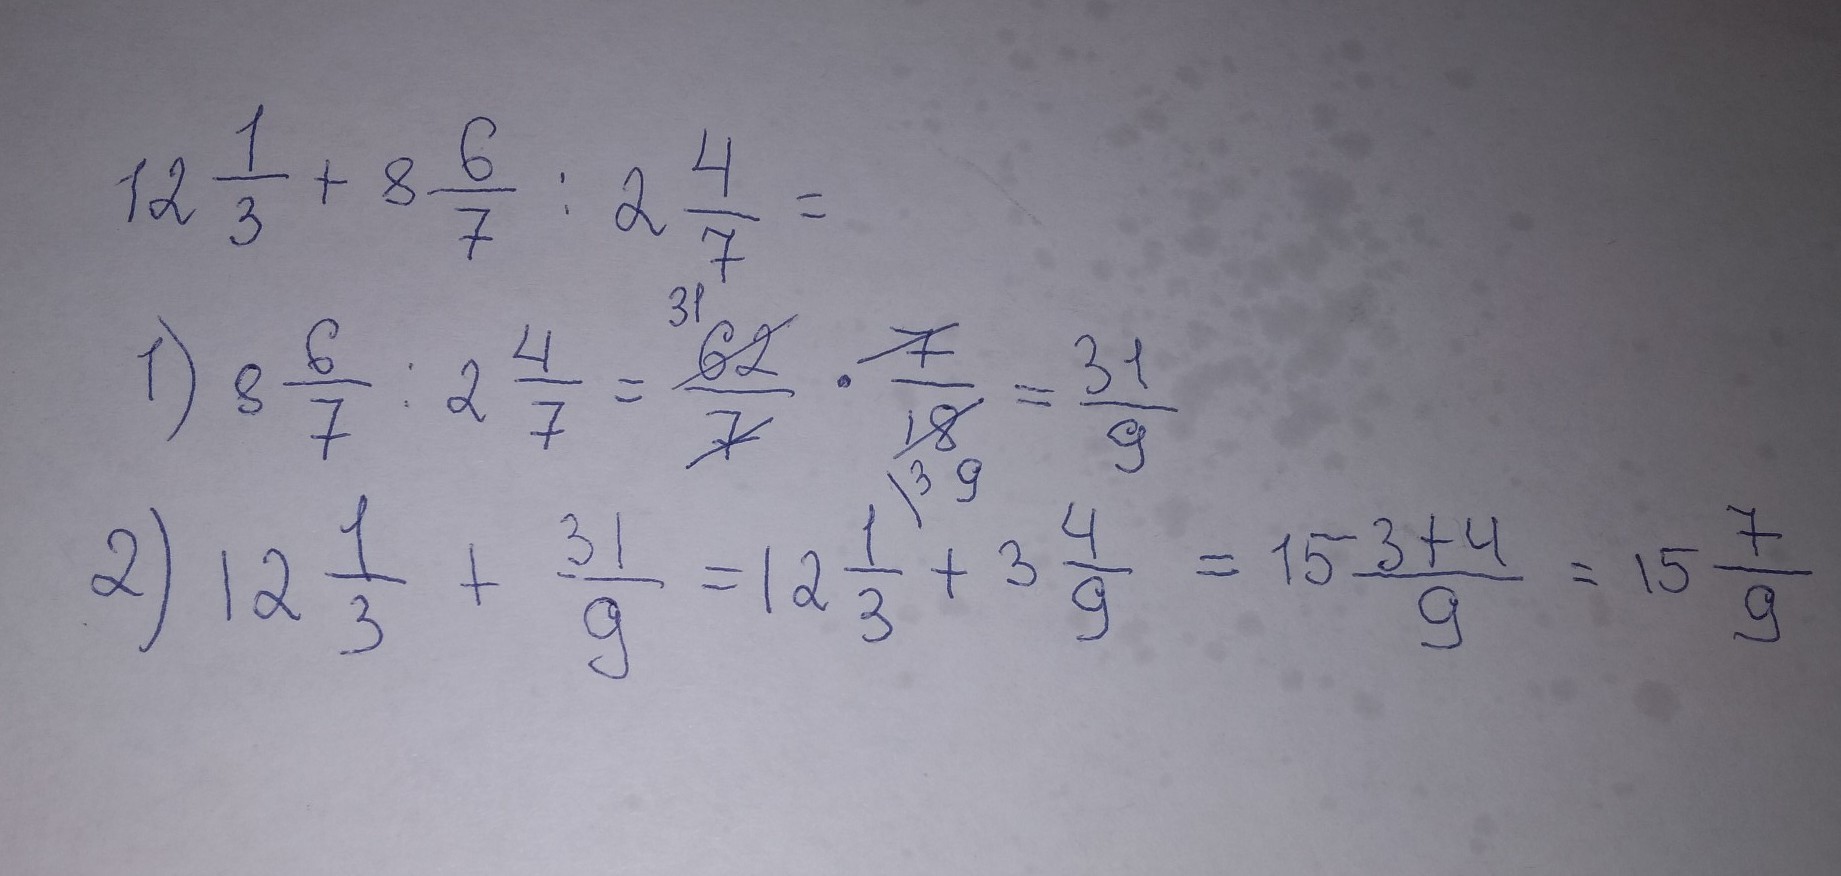 12 1/3 + 8 6/7 : 2 4/7 =
1) 8 6/7 : 2 4/7 = 31 62/7 · 7/18 9 = 31/9
2) 12 1/3 + 31/9 = 12 1\3/3 + 3 4/9 = 15 3+4/9 = 15 7/9